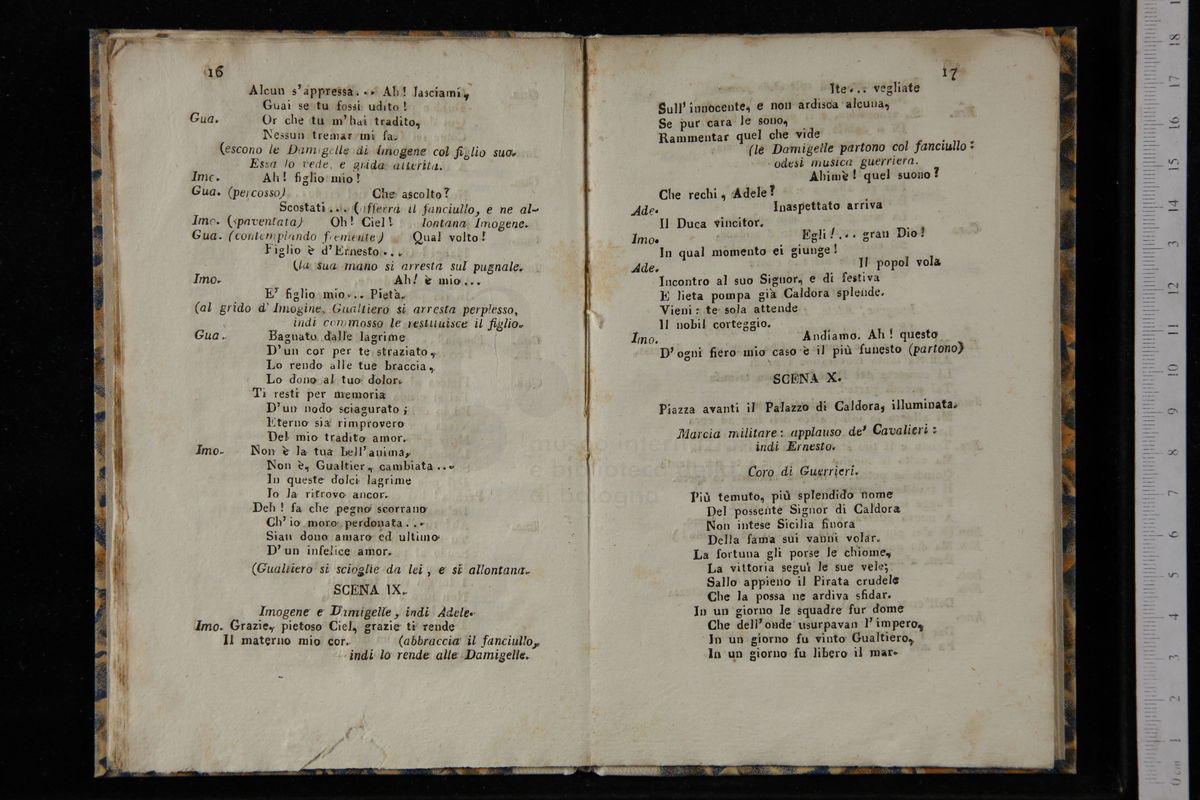 16
Alcun s'appressa... Ah! lasciami,
Guai se tu fossi udito!
Gua. Or che tu m'hai tradito,
Nessun tremar mi fa.
(escono le Damigelle di Imogene col figlio suo.
Essa lo vede, e grida atterita.
Imo. Ah! figlio mio!
Gua. (percosso) Che ascolto?
Scostati... (afferra il fanciullo, e ne al-
Imo. (spaventata) Oh! Ciel! lontana Imogene.
Gua. (contemplando fremente) Qual volto!
Figlio è d'Ernesto...
(la sua mano si arresta sul pugnale.
Imo. Ah! è mio...
E' figlio mio... Pietà.
(al grido d'Imogine, Gualtiero si arresta perplesso,
indi commosso le restituisce il figlio.
Gua. Bagnato dalle lagrime
D'un cor per te straziato,
Lo rendo alle tue braccia,
Lo dono al tuo dolor.
Ti resti per memoria
D'un nodo sciagurato;
Eterno sia rimprovero
Del mio tradito amor.
Imo. Non è la tua bell'anima,
Non è, Gualtier, cambiata...
In queste dolci lagrime
Io la ritrovo ancor.
Deh! fa che pegno scorrano
Ch'io moro perdonata...
Sian dono amaro ed ultimo
D'un infelice amor.
(Gualtiero si scioglie da lei, e si allontana.
SCENA IX.
Imogene e Damigelle, indi Adele.
Imo. Grazie, pietoso Ciel, grazie ti rende
Il materno mio cor. (abbraccia il fanciullo,
indi lo rende alle Damigelle.
17
Ite... vegliate
Sull'innocente, e non ardisca alcuna,
Se pur cara le sono,
Rammentar quel che vide
(le Damigelle partono col fanciullo:
odesi musica guerriera.
Ahimè! quel suono?
Che rechi, Adele?
Ade. Inaspettato arriva
Il Duca vincitor.
Imo. Egli!... gran Dio!
In qual momento ei giunge!
Ade. Il popol vola
Incontro al suo Signor, e di festiva
E lieta pompa già Caldora splende.
Vieni: te sola attende
Il nobil corteggio.
Imo. Andiamo. Ah! questo
D'ogni fiero mio caso è il più funesto (partono)
SCENA X.
Piazza avanti il Palazzo di Caldora, illuminata.
Marcia militare: applauso de' Cavalieri:
indi Ernesto.
Coro di Guerrieri.
Più temuto, più splendido nome
Del possente Signor di Caldora
Non intese Sicilia finora
Della fama sui vanni volar.
La fortuna gli porse le chiome,
La vittoria seguì le sue vele;
Sallo appieno il Pirata crudele
Che la possa ne ardiva sfidar.
In un giorno le squadre fur dome
Che dell'onde usurpavan l'impero,
In un giorno fu vinto Gualtiero,
In un giorno fu libero il mar.